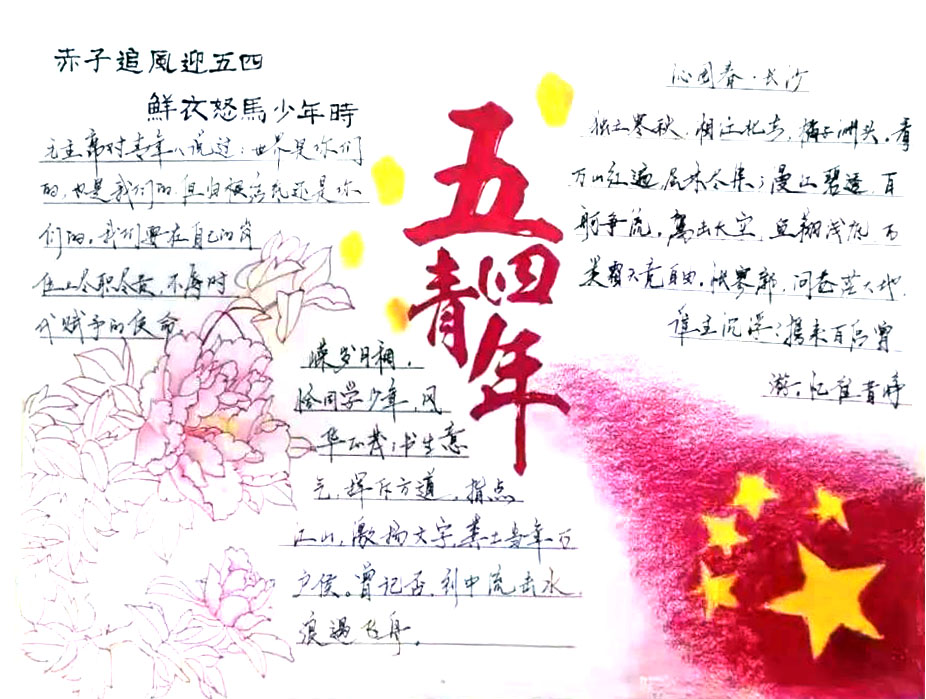 赤子追風迎五四
鮮衣怒馬少年時
毛主席对青年人说过:世界是你们
的,也是我们的.但归根结底还是你
们的。我们要在自己的岗
位上尽职尽责,不辱时
代赋予的使命.
五四
青年
沁园春·长沙
独立寒秋.湘江北去,橘子洲头。看
万山红遍.层林尽染;漫江碧透.百
舸争流。鹰击长空.鱼翔浅底.万
类霜天竞自由。怅寥郭.问苍茫大地.
谁主沉浮?携来百侣曾
游。忆往昔峥
嵘岁月稠.
恰同学少年,风
华正茂;书生意
气.挥斥方遒.指点
江山,激扬文字.粪土当年万
户侯。曾记否.到中流击水.
浪遏飞舟。